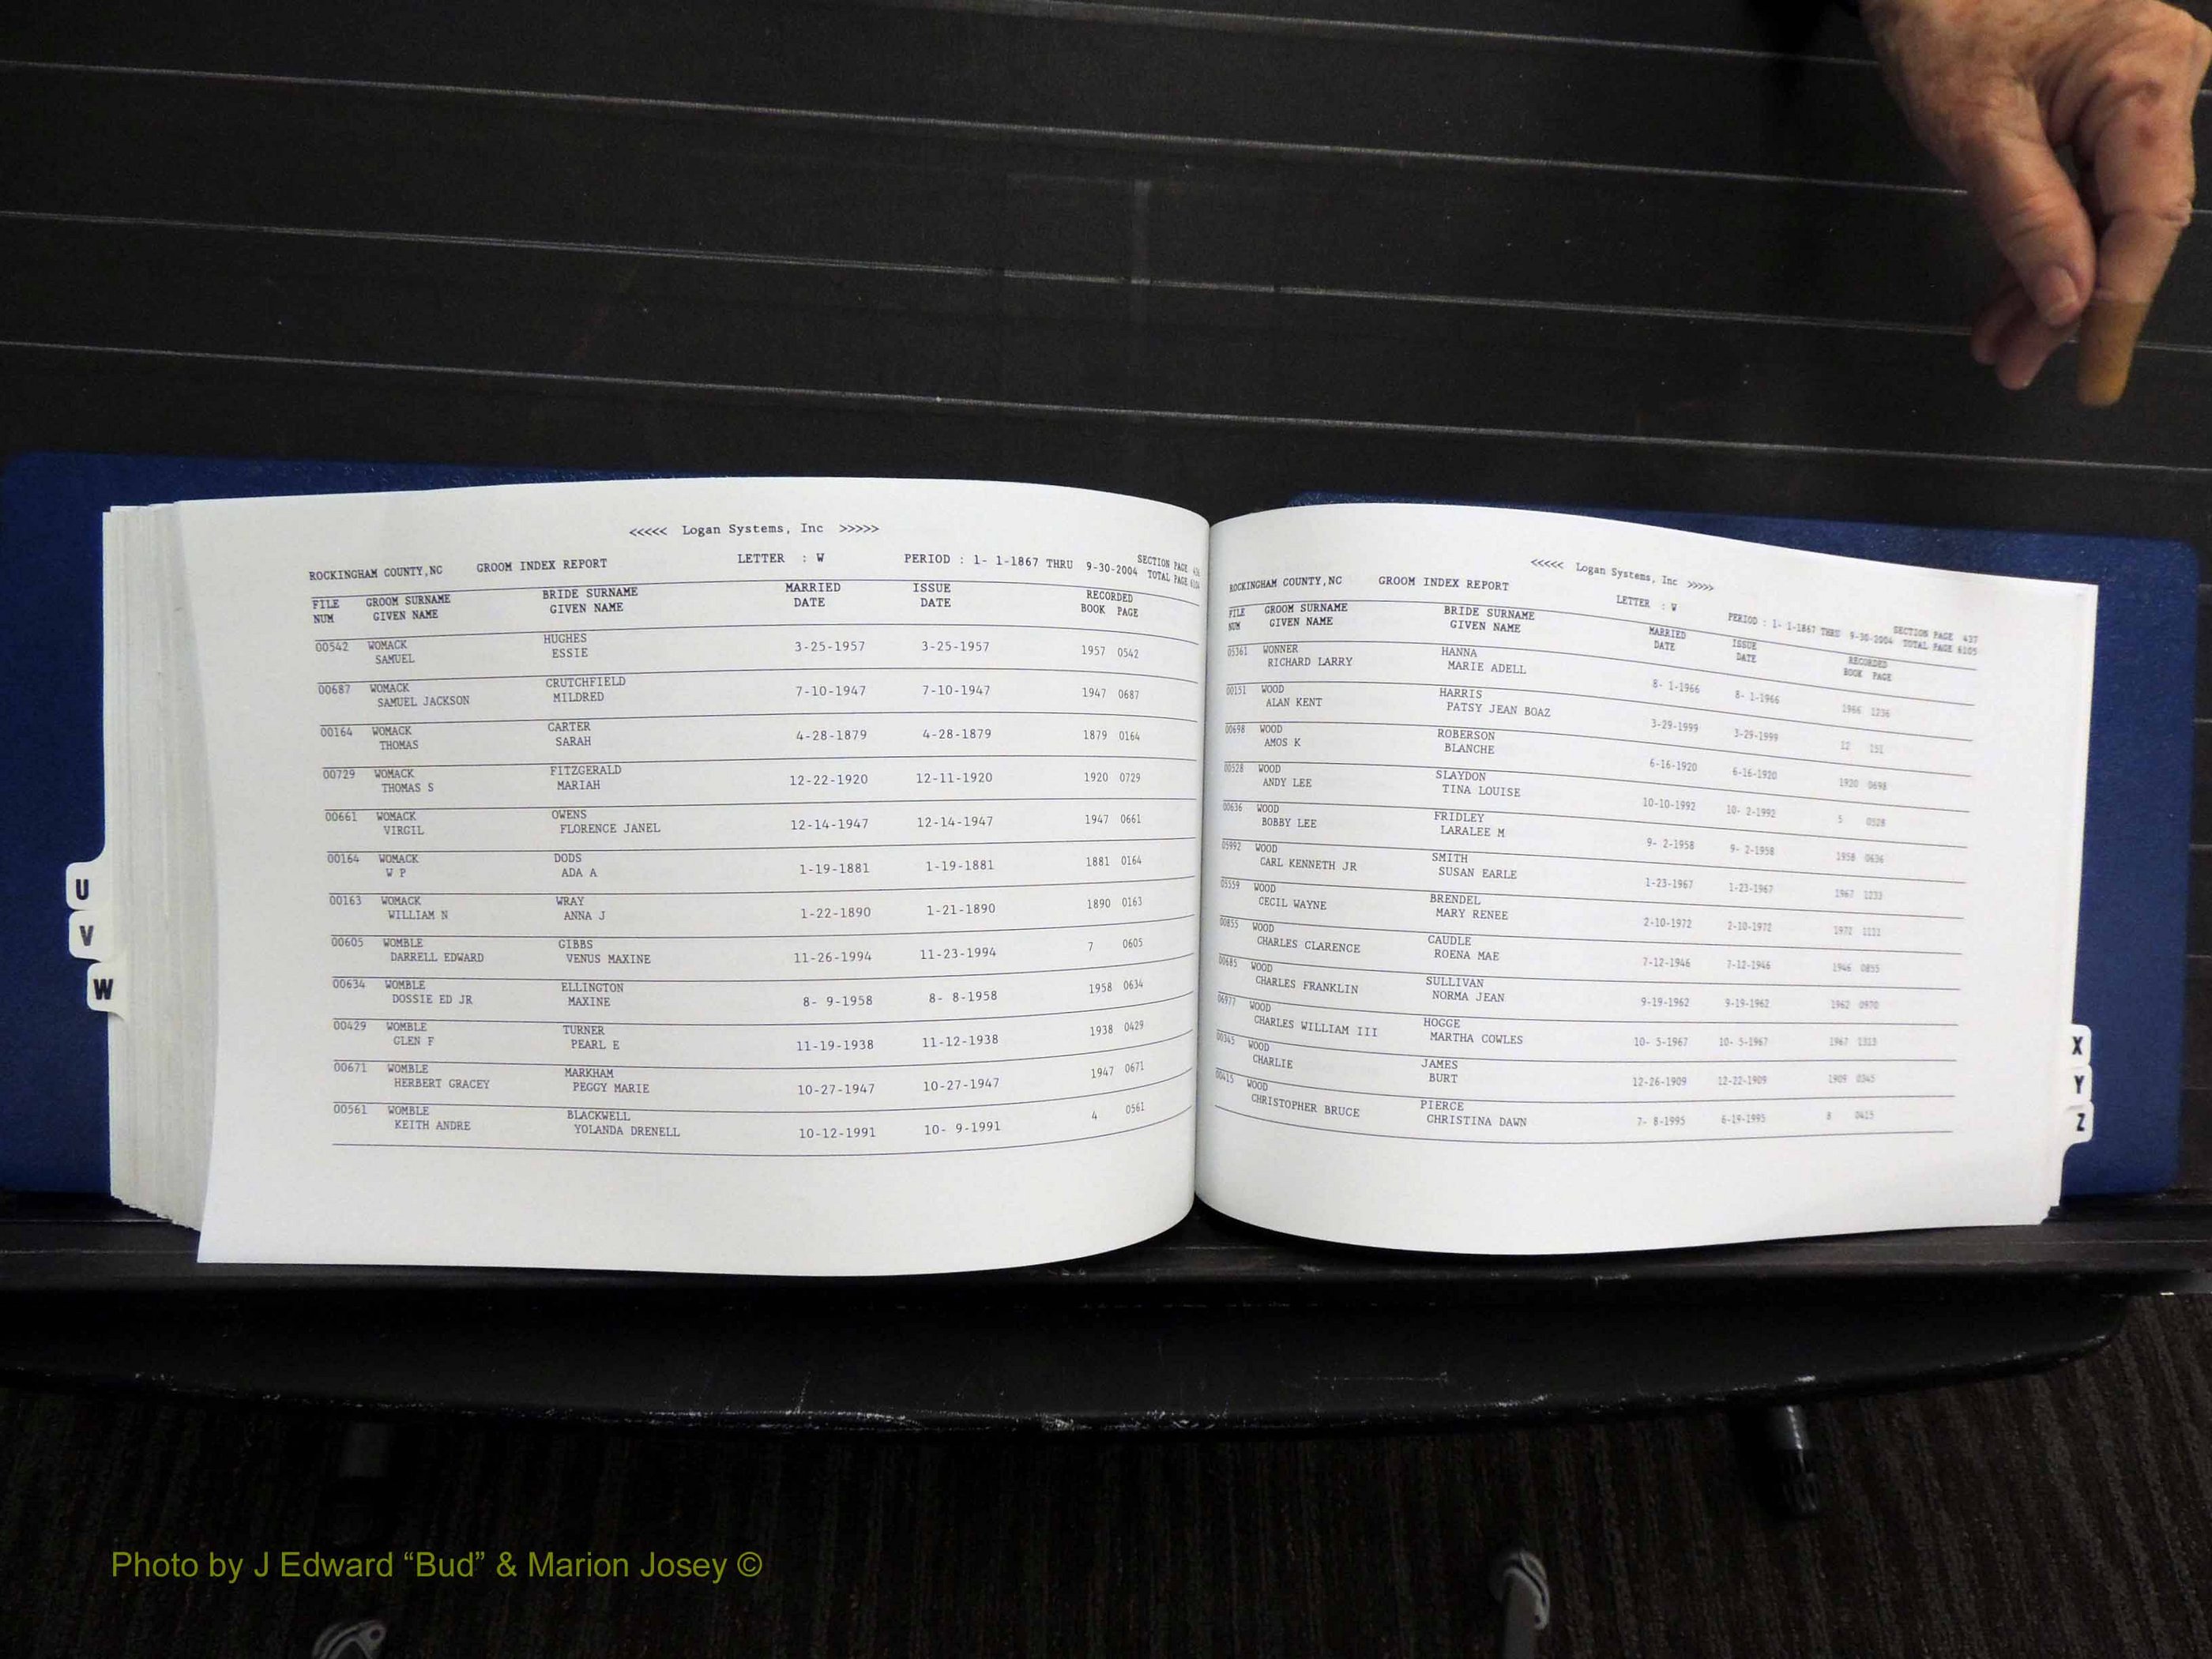 <<<<< Logan Systems, Inc >>>>>
ROCKINGHAM COUNTY,NC GROOM INDEX REPORT LETTER : W PERIOD : 1- 1-1867 THRU 9-30-2004 SECTION PAGE
TOTAL PAGE
FILE GROOM SURNAME BRIDE SURNAME MARRIED ISSUE RECORDED
NUM GIVEN NAME GIVEN NAME DATE DATE BOOK PAGE
00542 WOMACK HUGHES 3-25-1957 3-25-1957 1957 0542
SAMUEL ESSIE
00687 WOMACK CRUTCHFIELD 7-10-1947 7-10-1947 1947 0687
SAMUEL JACKSON MILDRED
00164 WOMACK CARTER 4-28-1879 4-28-1879 1879 0164
THOMAS SARAH
00729 WOMACK FITZGERALD 12-22-1920 12-11-1920 1920 0729
THOMAS S MARIAH
00661 WOMACK OWENS 12-14-1947 12-14-1947 1947 0661
VIRGIL FLORENCE JANEL
00164 WOMACK DODS 1-19-1881 1-19-1881 1881 0164
W P ADA A
00163 WOMACK WRAY 1-22-1890 1-21-1890 1890 0163
WILLIAM N ANNA J
00605 WOMBLE GIBBS 11-26-1994 11-23-1994 7 0605
DARRELL EDWARD VENUS MAXINE
00634 WOMBLE ELLINGTON 8- 9-1958 8- 8-1958 1958 0634
DOSSIE ED JR MAXINE
00429 WOMBLE TURNER 11-19-1938 11-12-1938 1938 0429
GLEN F PEARL E
00671 WOMBLE MARKHAM 10-27-1947 10-27-1947 1947 0671
HERBERT GRACEY PEGGY MARIE
00561 WOMBLE BLACKWELL 10-12-1991 10- 9-1991 4 0561
KEITH ANDRE YOLANDA DRENELL
U
V
W
<<<<< Logan Systems, Inc >>>>>
ROCKINGHAM COUNTY,NC GROOM INDEX REPORT LETTER : W PERIOD : 1- 1-1867 THRU 9-30-2004 SECTION PAGE 437
TOTAL PAGE 6105
FILE GROOM SURNAME BRIDE SURNAME MARRIED ISSUE RECORDED
NUM GIVEN NAME GIVEN NAME DATE DATE BOOK PAGE
05361 WONNER HANNA 8- 1-1966 8- 1-1966 1966 1236
RICHARD LARRY MARIE ADELL
00151 WOOD HARRIS 3-29-1999 3-29-1999 12 151
ALAN KENT PATSY JEAN BOAZ
00698 WOOD ROBERSON 6-16-1920 6-16-1920 1920 0698
AMOS K BLANCHE
00528 WOOD SLAYDON 10-10-1992 10- 2-1992 5 0528
ANDY LEE TINA LOUISE
00636 WOOD FRIDLEY 9- 2-1958 9- 2-1958 1958 0636
BOBBY LEE LARALEE M
05992 WOOD SMITH 1-23-1967 1-23-1967 1967 1233
CARL KENNETH JR SUSAN EARLE
05559 WOOD BRENDEL 2-10-1972 2-10-1972 1972
CECIL WAYNE MARY RENEE
00855 WOOD CAUDLE 7-12-1946 7-12-1946 1946 0855
CHARLES CLARENCE ROENA MAE
00685 WOOD SULLIVAN 9-19-1962 9-19-1962 1962 0970
CHARLES FRANKLIN NORMA JEAN
06977 WOOD HOGGE 10- 5-1967 10- 5-1967 1967 1313
CHARLES WILLIAM III MARTHA COWLES
00345 WOOD JAMES 12-26-1909 12-22-1909 1909 0345
CHARLIE BURT
00415 WOOD PIERCE 7- 8-1995 6-19-1995 8 0415
CHRISTOPHER BRUCE CHRISTINA DAWN
X
Y
Z
Photo by J Edward “Bud” & Marion Josey ©